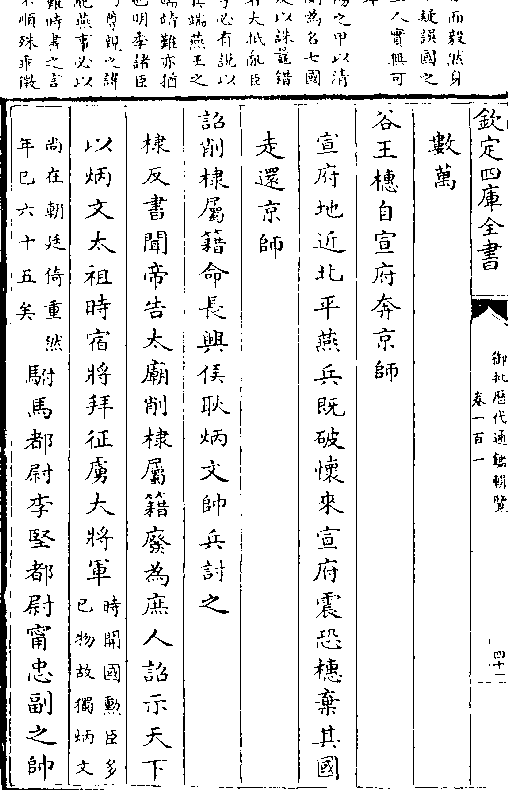 欽定四庫全書
御批歷代通鑑輯覽
卷一百一
四十一
數萬
谷王橞自宣府奔京師
宣府地近北平燕兵既破懷來宣府震恐橞棄其國
走還京師
詔削棣屬籍命長興侯耿炳文帥兵討之
棣反書聞帝告太廟削棣屬籍廢為庶人詔示天下
以炳文太祖時宿將拜征虜大將軍時開國勲臣多
已物故獨炳文
尚在朝廷倚重然
年已六十五矣駙馬都尉李堅都尉甯忠副之帥
而毅然身
疑誤國之
人實無可
陽之甲以清
為名七國
以誅鼂錯
大抵亂臣
必有說以
其端燕王之
靖難亦猶
也明季諸臣
尊親之諱
燕事必以
難時書之言
不順殊乖徵